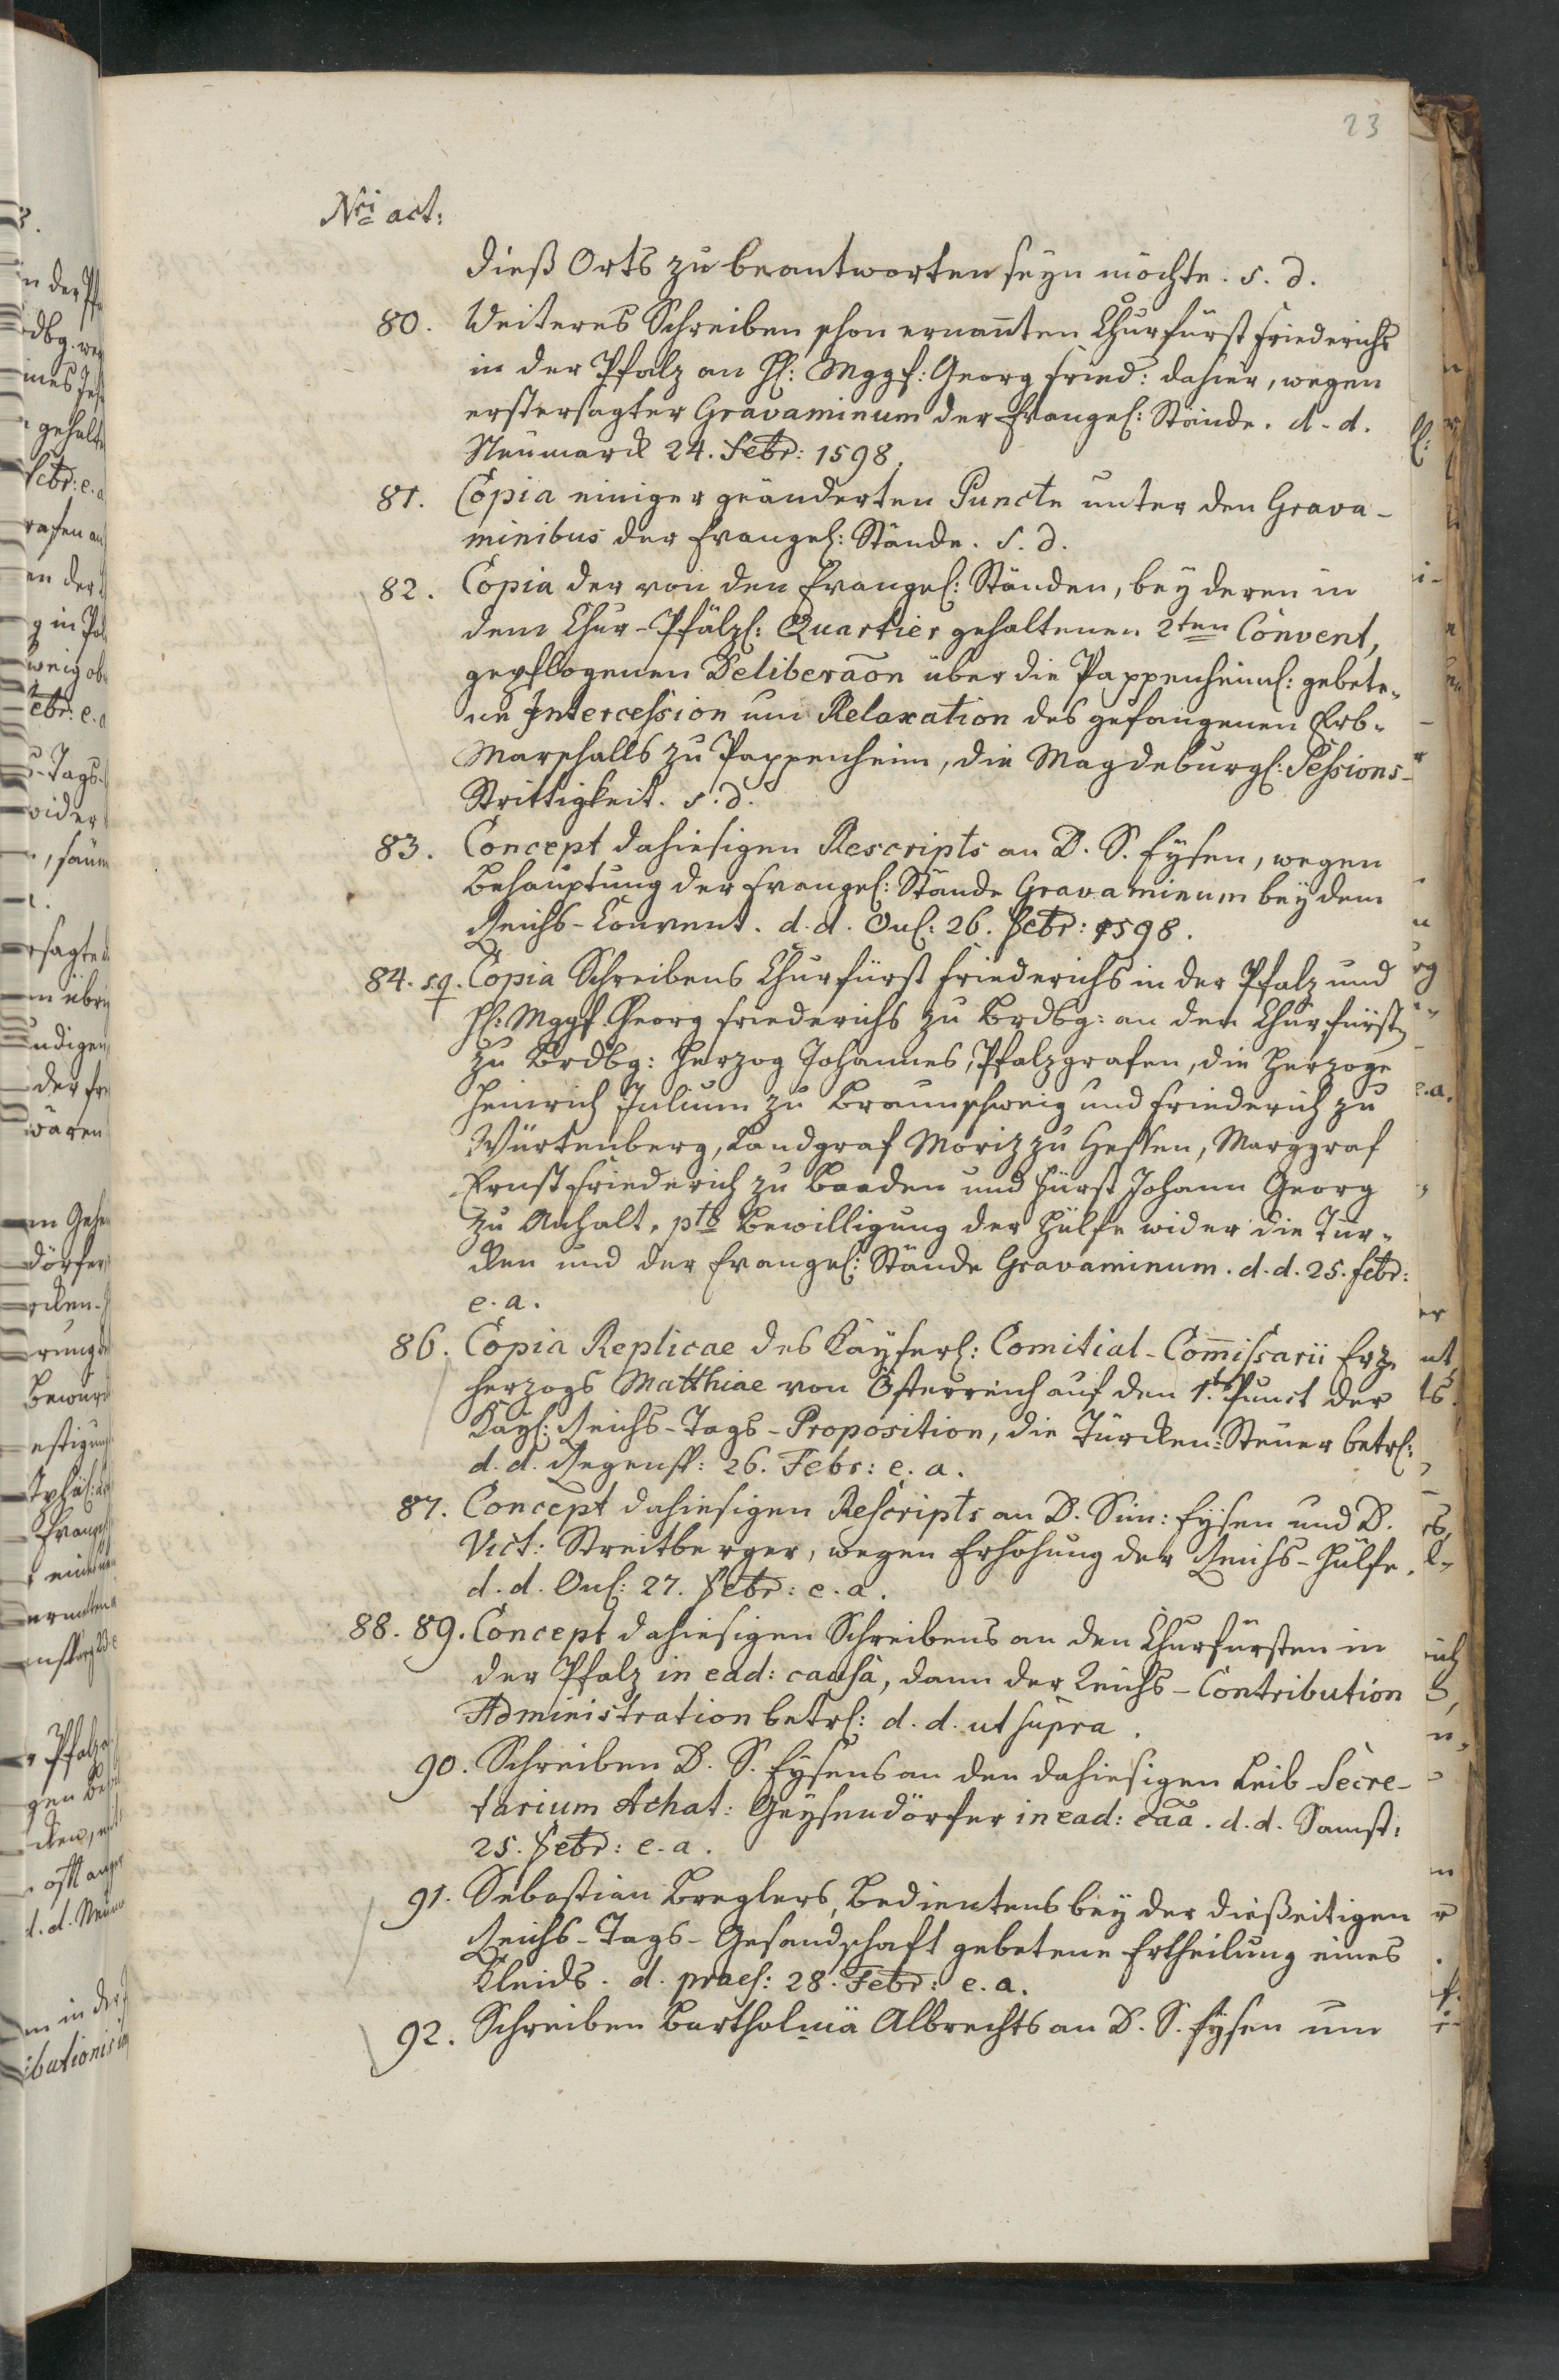 23
Nri act:
dieß Orts zu beantworten seyn möchte. s. d.
80. Weiteres Schreiben schon ernannten Churfürst Friederichs
in der Pfalz an H: Mggf: Georg Fried: dahier, wegen
erstersagter Gravaminum der Evangel: Stände. d. d.
Neumarck 24. Febr: 1598.
81. Copia einiger geänderten Puncte unter den Grava-
minibus der Evangel: Stände. s. d.
82. Copia der von den Evangel: Ständen, bey deren in
dem Chur-Pfälzl: Quartier gehaltenen 2ten Convent,
gepflogenen Deliberãon über die Pappenheiml: gebete-
ne Intercession um Relaxation des gefangenen Erb-
Marschalls zu Pappenheim, die Magdeburgl: Sessions-
Strittigkeit. s. d.
83. Concept dahiesigen Rescripts an D. S. Eysen, wegen
Behauptung der Evangel: Stände Gravaminum bey dem
Reichs-Convent. d. d. Onl: 26. Febr: 1598.
84. sq. Copia Schreibens Churfürst Friederichs in der Pfalz und
H: Mggf. Georg Friederichs zu Brdbg: an den Churfürstn
zu Brdbg: Herzog Johannes, Pfalzgrafen, die Herzoge
Heinrich Julium zu Braunschweig und Friederich zu
Würtenberg, Landgraf Moriz zu Hessen, Marggraf
Ernst Friederich zu Baaden und Fürst Johann Georg
zu Anhalt, pto Bewilligung der Hülfe wider die Tür-
cken und der Evangel: Stände Gravaminum. d. d. 25. Febr:
e. a.
86. Copia Replicae des Kayserl: Comitial-Com̃issarii Erz-
herzogs Matthiae von Österreich auf den 1.ten Punct der
Kayl: Reichs-Tags-Proposition, die Türcken-Steuer betrl:
d. d. Regensp: 26. Febr: e. a.
87. Concept dahiesigen Rescripts an D. Sim: Eysen und D.
Vict: Streitberger, wegen Erhöhung der Reichs-Hülfe.
d. d. Onl: 27. Febr: e. a.
88. 89. Concept dahiesigen Schreibens an den Churfürsten in
der Pfalz in ead: causa, dann der Reichs-Contribution
Administration betrl: d. d. ut supra.
90. Schreiben D. S. Eysens an den dahiesigen Leib-Secre-
tarium Achat: Geysendörfer in ead: cãa. d. d. Samst:
25. Febr: e. a.
91. Sebastian Breglers, Bedientens bey der dießeitigen
Reichs-Tags-Gesandschaft gebetene Ertheilung eines
Kleids. d. praes: 28. Febr: e. a.
92. Schreiben Bartholmä Albrechts an D. S. Eysen um